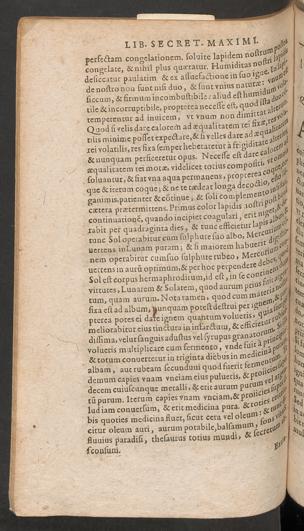 LIB. SECRET. MAXIMI.
perfectam congelationem. soluite lapidem nostrum
congelate, & nihil plus quæratur. Humiditas nostri lapidis
desiccatur paulatim & ex assuefactione in suo igne.
de nostro non sunt nisi duo, & sunt vnius naturæ: vnum est
siccum, & firmum incombustibile: aliud est humidum
tile & incorruptibile, propterea necesse est, quod ista duo
temperentur ad inuicem, vt vnum non dimittat
Quod si velis dare calorem ad æqualitatem rei fixæ,
tilis minime posset expectare, & si velles dare ad æqualitatem
rei volatilis, res fixa semper hebetaretur à frigiditate
& nunquam perficeretur opus. Necesse est dare calorem
æqualitatem rei motæ, videlicet totius compositi, vt omnia
soluantur, & fiat vna aqua permanens, propterea coque,
que & iterum coque, & ne te tædeat longa decoctio,
ganimis, patienter & cõtinue, & soli complemento
cætera prætermittens. Primus color lapidis nostri post
continuationẽ, quando incipiet coagulari, erit niger, &
rabit per quadraginta dies, & tunc efficietur lapis
tunc Sol operabitur cum sulphure suo albo, Mercurium
uertens in Lunam puram; & si maiorem habuerit
nem operabitur cum suo sulphure rubeo, Mercurium
uertens in aurũ optimum, & per hoc perpendere debes,
Sol est corpus hermaphroditum, id est, in se continens
virtutes, Lunarem & Solarem, quod aurum prius fit
tum, quam aurum. Nota tamen, quod cum materia
fixa est ad album, nunquam potest destrui per ignem, &
pterea potes ei dare ignem quantum volueris, quia
meliorabitur eius tinctura in infinitum, & efficietur
dissima, velut sanguis adustus vel syrupus granatorum. Si
volueris multiplicare cum fermento, vnde fuit à principio
& totum conuertetur in triginta diebus in medicinã
albam, aut rubeam secundum quod fuerit fermentum,
demum capies vnam vnciam eius pulueris, & proiicies
decem cuiuscunque metalli, & erit aurum purum vel
tũ purum. Iterum capies vnam vnciam, & proiicies
lud iam conuersum, & erit medicina pura. & toties
bis quoties medicina fluet, sicut cera vel oleum: & tunc
citur oleum auri, aurum potabile, balsamum,
fluuius paradisi, thesaurus totius mundi, & secretum
sconsum.